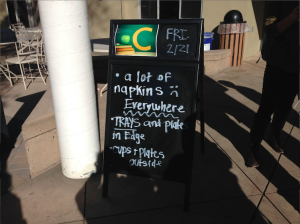 C
FRI
2/21
• a lot of
napkins :(
Everywhere
• TRAYS and plate
in Edge
• cups + plates
outside